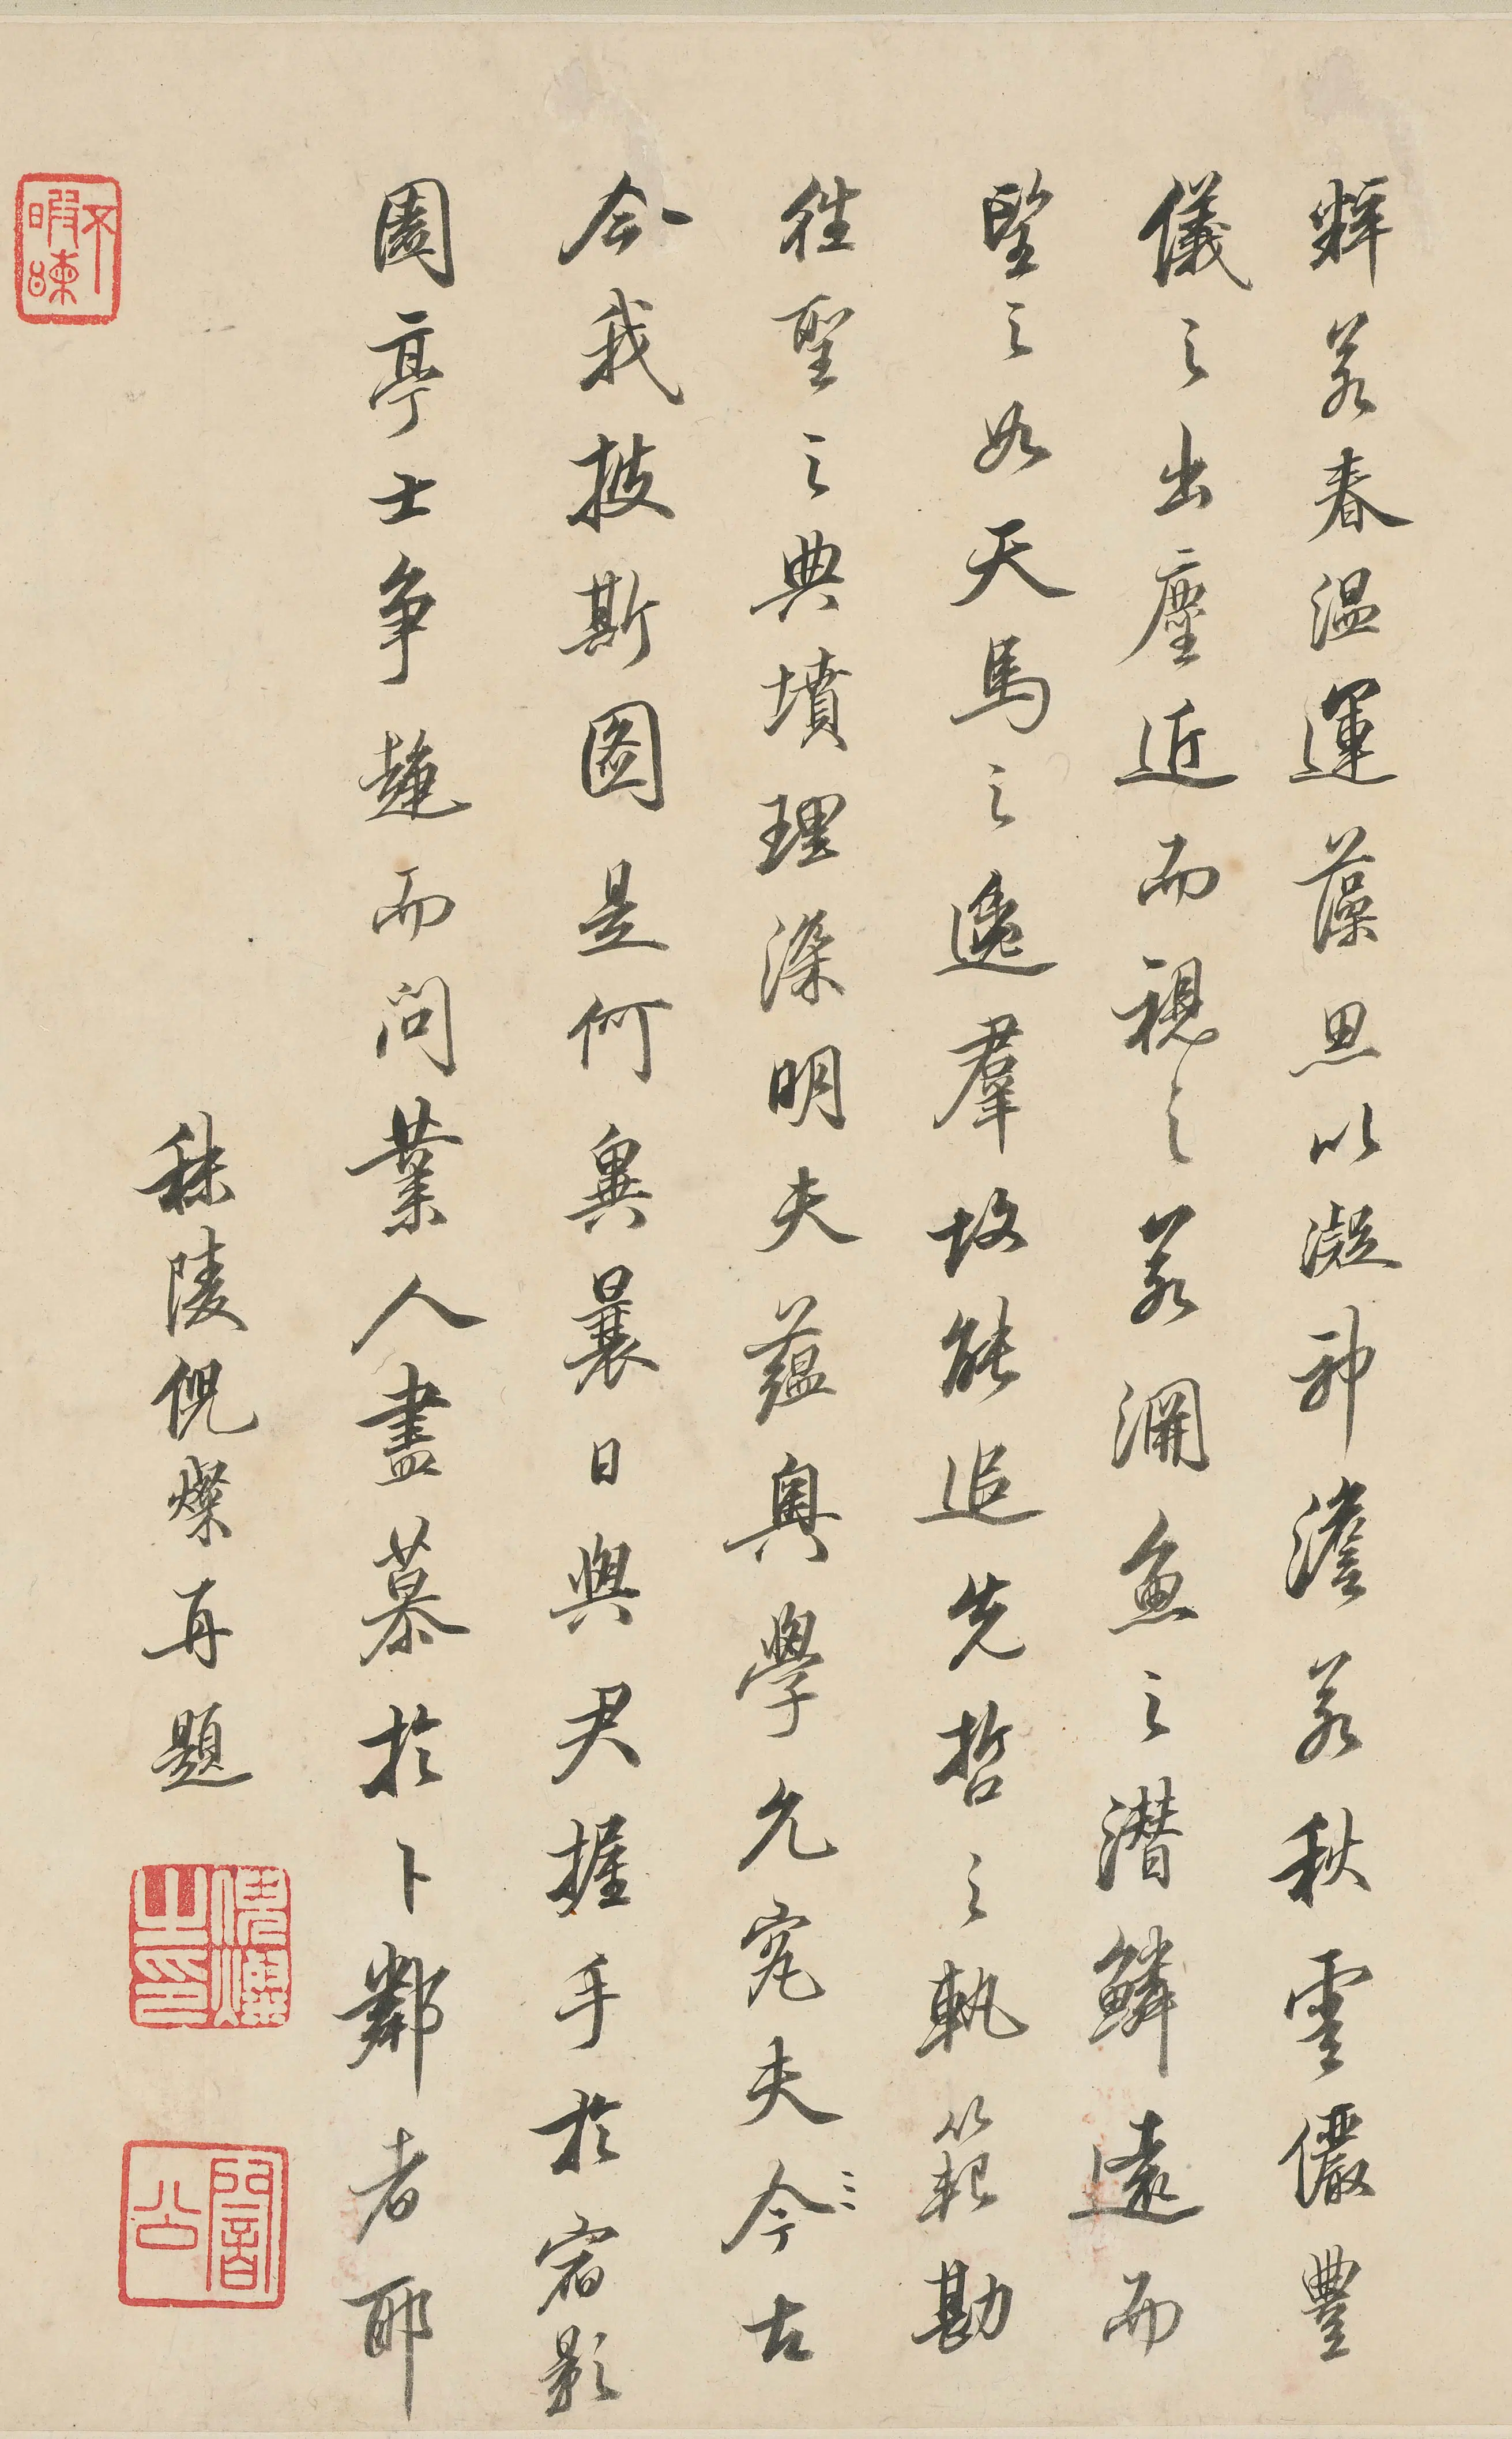 輝若春温運藻思以凝神澹若秋雲儼豐
儀之出塵近而視之若淵魚之潛鱗遠而
望之如天馬之逸羣故能追先哲之軌範勘
往聖之典墳理深明夫蘊奧學允究夫今古
今我披斯圖是何異曩日與君握手於宿影
園亭士争趨而問業人盡慕於卜鄰者耶
秣陵倪燦再題
倪燦之印
闇公
不暇